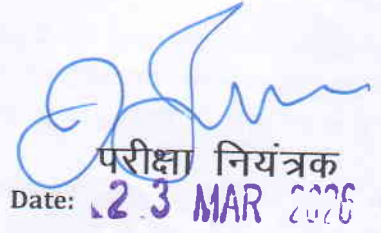 परीक्षा नियंत्रक
Date: 23 MAR 2026